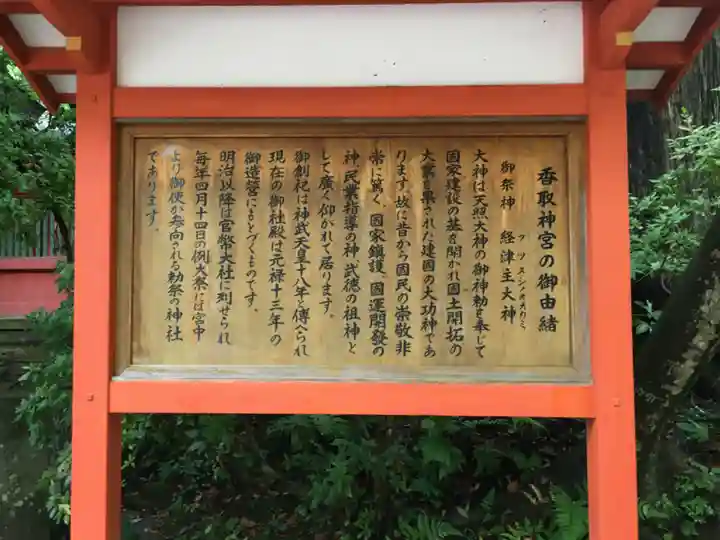 香取神宮の御由緒
御祭神 経津主大神
フツヌシノオオカミ
大神は天照大神の御神勅を奉じて
国家建設の基を開かれ国土開拓の
大業を果された建国の大功神であ
ります。故に昔から国民の崇敬非
常に篤く、国家鎮護、国運開發の
神、民業指導の神、武徳の祖神と
して廣く仰かれて居ります。
御創祀は神武天皇十八年と傳へられ
現在の御社殿は元禄十三年の
御造營にもとづくものです。
明治以降は官幣大社に列せられ
毎年四月十四日の例大祭には宮中
より御使が参向される勅祭の神社
であります。